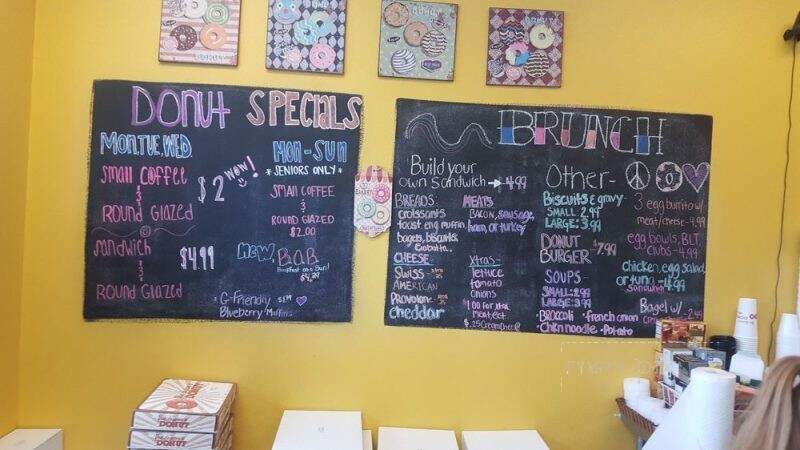 DONUT SPECIALS
MON, TUE, WED.
Small Coffee
&
Round Glazed
$2 wow!
Sandwich
&
Round Glazed
$4.99
MON - SUN
* SENIORS ONLY *
SMALL COFFEE
&
ROUND GLAZED
$2.00
NEW
B.O.B
Breakfast on a Bun!
G-Friendly
Blueberry Muffins
BRUNCH
Build your
own Sandwich → 4.99
BREADS:
croissants
toast, eng. muffin,
bagels, biscuits,
MEATS
BACON, Sausage,
ham, or turkey
CHEESE
Swiss
AMERICAN
Provolone
cheddar
Xtras-
lettuce
tomato
onions
$1.00 for xtra
meat, ect
$.25 Cream Cheese
Other-
Biscuits & gravy-
SMALL: 2.99
LARGE: 3.99
DONUT
BURGER $7.99
SOUPS
SMALL: 2.99
LARGE: 3.99
• BROCCOLI • French onion
• Chkn noodle • Potato
3 egg burrito w/
meat/cheese - 4.99
egg bowls, BLT,
clubs - 4.99
chicken, egg salad,
or tuna - 4.99
Sandwich
Bagel w/
2.99
DONUT
DONUT